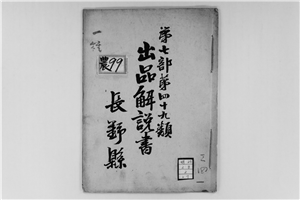 第七部第四十九類
出品解説書
長野縣
一種
農99